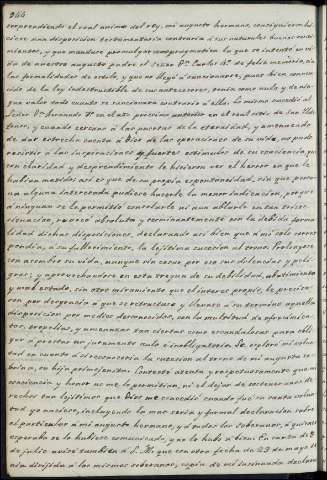 266
sorprendiendo el real animo del rey, mi augusto hermano, consiguieron hi-
ciese una disposicion testamentaria contraria á sus naturales buenos senti-
mientos, y que mandase promulgar una pragmatica que se intentó en vi-
da de nuestro augusto padre el Señor Dn. Carlos 4º. de feliz memoria, sin
las formalidades de estilo, y que no llegó á sancionarse, pues bien conven-
cido de la ley indestructible de sus antecesores, tenia como nulo y de nin-
gun valor todo cuanto se sancionara contrario á ella. Lo mismo sucedió al
Señor Dn. Fernando 7º. en el año proximo anterior en el real sitio de San Ilde-
fonso, y cuando cercano á las puertas de la eternidad, y amenazado
de dar estrecha cuenta á Dios de las operaciones de su vida, no pudo
resistir á las inspiraciones y fuertes estimulos de su conciencia, que
con claridad y desprendimiento le hicieron ver el horror en que le
habian metido: asi es que de su propia espontaneidad, sin que perso-
na alguna interesada pudiese hacerle la menor indicacion, porque
á ninguna se le permitió consolarle ni aun hablarle en tan triste
situacion, revocó absoluta y terminantemente con la debida forma-
lidad dichas disposiciones, declarando asi bien que á mi solo corres-
pondia, á su fallecimiento, la legitima sucesion al trono. Prolongose
con asombro su vida, aunque sin cesar por eso sus dolencias y peli-
gros; y aprovechandose en esta tregua de su debilidad, abatimiento
y mal estado, sin otro miramiento que el interes propio, le precisa-
ron por desgracia á que se retractase, y llevase á su termino aquella
disposicion por medios desconocidos, con la multitud de ofrecimien-
tos, tropelias, y amenazas tan ciertas como escandalosas para obli-
gar á prestar un juramento nulo é involuntario. Se exploró mi volun-
tad en cuanto á si reconoceria la sucesion al trono de mi augusta so-
brina, su hija primogenita. Contesté atenta y respetuosamente que mi
conciencia y honor no me lo permitian, ni el dejar de sostener unos de-
rechos tan legitimos que Dios me concedió cuando fue su santa volun-
tad yo naciese, incluyendo la mas seria y formal declaracion sobre
el particular á mi augusto hermano, y á todos los soberanos, á quienes
esperaba se lo hubiese comunicado, y no lo hubo á bien. En carta de 8
de julio avisé tambien á S. M. que con otra fecha de 23 de mayo ha-
bia dirigido á los mismos soberanos, copia de mi insinuada declara-